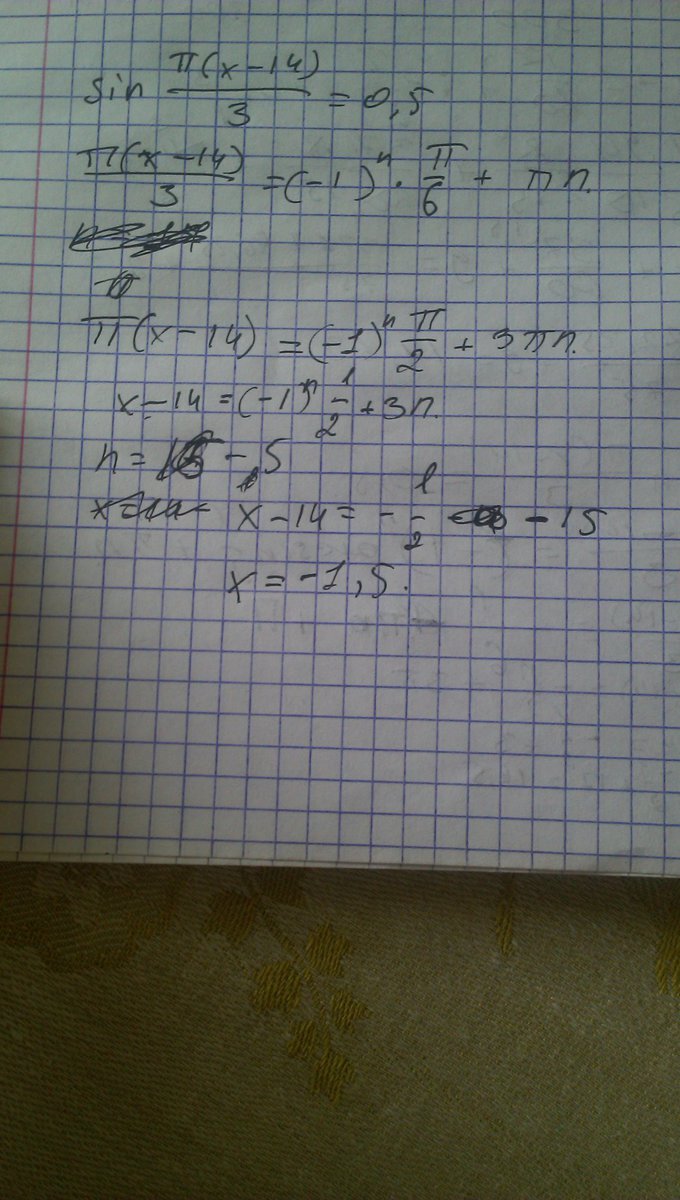 sin π(x-14)/3 = 0,5
π(x-14)/3 = (-1)^n · π/6 + πn.
π(x-14) = (-1)^n π/2 + 3πn.
x-14 = (-1)^n 1/2 + 3n.
n = -5
x-14 = - 1/2 - 15
x = -1,5.